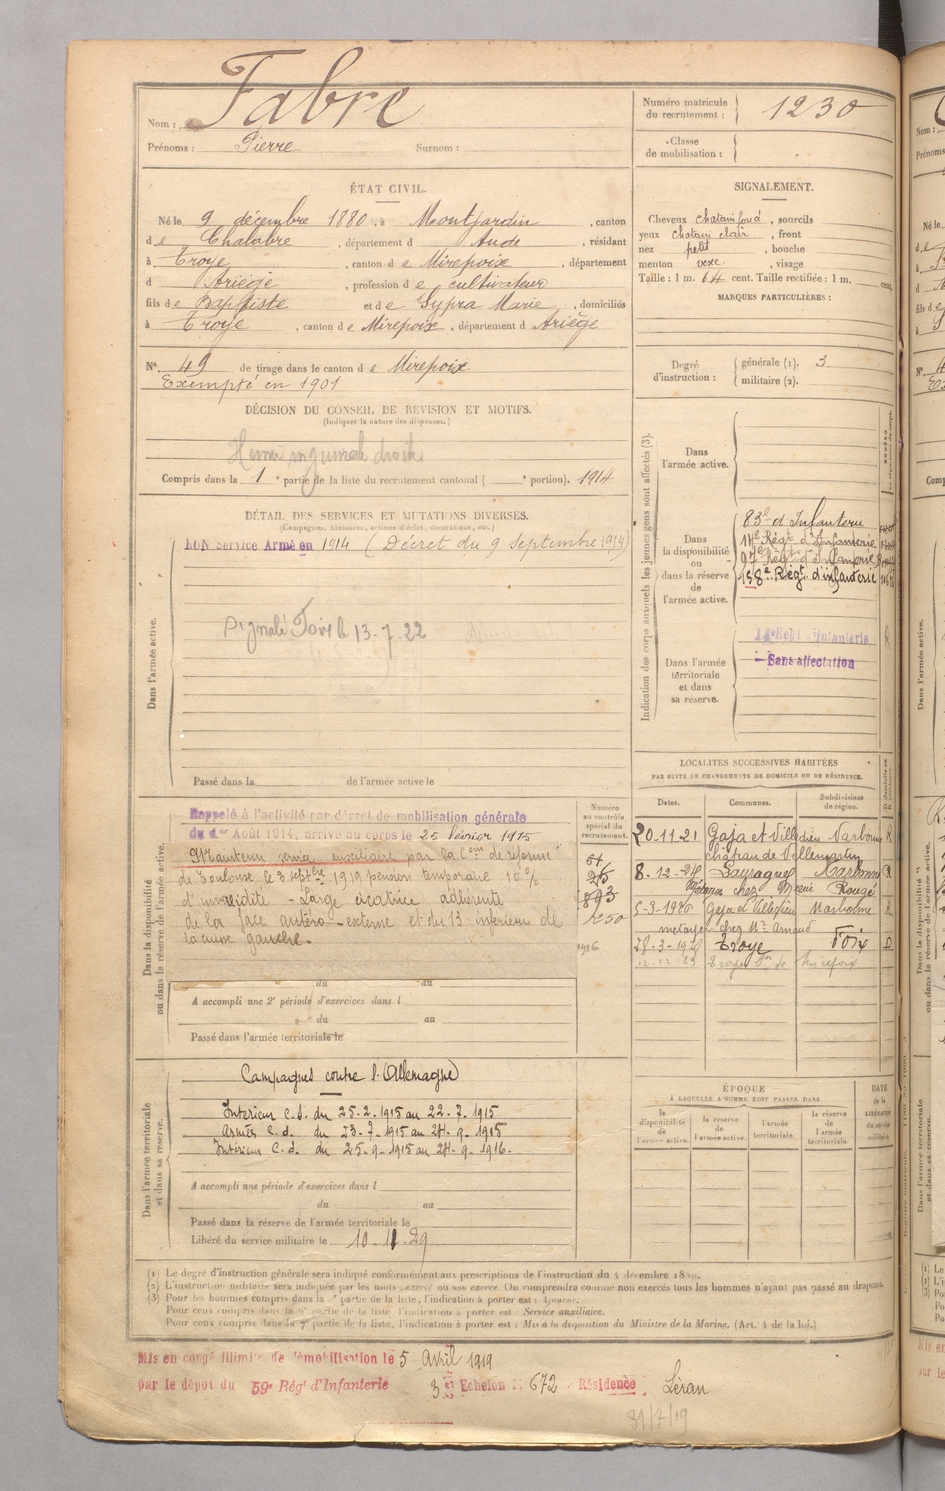 Nom : Fabre
Prénoms : Pierre Surnom :
Numéro matricule du recrutement : 1230
Classe de mobilisation :
ÉTAT CIVIL.
Né le 9 décembre 1880, à Montjardin, canton
de Chalabre, département d Aude, résidant
à Troye, canton de Mirepoix, département
d Ariège, profession de cultivateur
fils de Baptiste et de Gypra Marie, domiciliés
à Troye, canton de Mirepoix, département d Ariège
N° 49 de tirage dans le canton de Mirepoix
Exempté en 1901
SIGNALEMENT.
Cheveux chatain foncé, sourcils
yeux chatain clair, front
nez petit, bouche
menton , visage
Taille : 1 m. 64 cent. Taille rectifiée : 1 m. cent.
MARQUES PARTICULIÈRES :
Degré d'instruction : générale (1). 3.
militaire (2).
DÉCISION DU CONSEIL DE REVISION ET MOTIFS.
(Indiquer la nature des dispenses.)
Hernie inguinale droite
Compris dans la 1e partie de la liste du recrutement cantonal ( e portion). 1914
DÉTAIL DES SERVICES ET MUTATIONS DIVERSES.
(Campagnes, blessures, actions d'éclat, décorations, etc.)
BON Service Armé en 1914 (Décret du 9 Septembre 1914)
Signalé Foix le 13-7-22
Dans l'armée active.
Passé dans la de l'armée active le
Indication des corps auxquels les jeunes gens sont affectés (3).
Dans l'armée active.
Dans la disponibilité ou dans la réserve de l'armée active.
83e d'Infanterie
14e Régt d'Infanterie
97e Régt d'Infanterie
158e Régt d'infanterie
Dans l'armée territoriale et dans sa reserve.
14e Regt d'Infanterie
Sans affectation
LOCALITES SUCCESSIVES HABITÉES
PAR SUITE DE CHANGEMENTS DE DOMICILE OU DE RÉSIDENCE.
Dates. Communes. Subdivisions de région.
20-11-21 Gaja et Villedieu Narbonne R
château de Villemartin
8-12-25 Lauraguel Narbonne R
chez Rouge
5-3-1926 Gaja et Villedieu Narbonne R
metayer chez Mr Arnaud
28-3-1928 Troye Foix D
12-12-29 Mirepoix
Dans la disponibilité ou dans la réserve de l'armée active.
Rappelé à l'activité par décret de mobilisation générale
du 1er Août 1914, arrivé au corps le 25 février 1915
Maintenu service auxiliaire par la Com de réforme
de Toulouse le 3 septbre 1919 pension temporaire 10 %
d'invalidité - Large cicatrice adhérente
de la face antéro-externe et du 1/3 inférieur de
la cuisse gauche.
Numéro au contrôle spécial du recrutement.
893
1250
1916
du au
A accompli une 2e période d'exercices dans l
du au
Passé dans l'armée territoriale le
Dans l'armée territoriale et dans sa reserve.
Campagnes contre l'Allemagne
Intérieur C.d. du 25-2-1915 au 22-7-1915
Armées C.d. du 23-7-1915 au 24-9-1915
Intérieur C.d. du 25-9-1915 au 24-9-1916.
A accompli une période d'exercices dans l
du au
Passé dans la réserve de l'armée territoriale le
Libéré du service militaire le 10-11-29
ÉPOQUE
À LAQUELLE L'HOMME DOIT PASSER DANS
la disponibilité de l'armée active.
la réserve de l'armée active.
l'armée territoriale.
la réserve de l'armée territoriale.
DATE de la LIBÉRATION du service militaire.
(1) Le degré d'instruction générale sera indiqué conformément aux prescriptions de l'instruction du 4 décembre 1889.
(2) L'instruction militaire sera indiquée par les mots exercé ou non exercé. On comprendra comme non exercés tous les hommes n'ayant pas passé au drapeau.
(3) Pour les hommes compris dans la 1re partie de la liste, l'indication à porter est :
Pour ceux compris dans la partie de la liste, l'indication à porter est : Service auxiliaire.
Pour ceux compris dans la partie de la liste, l'indication à porter est : Mis à la disposition du Ministre de la Marine. (Art. 4 de la loi.)
Mis en congé illimité de démobilisation le 5 Avril 1919
par le dépot du 59e Régt d'Infanterie 3e Echelon N° 672 Résidence Léran
31/7/19